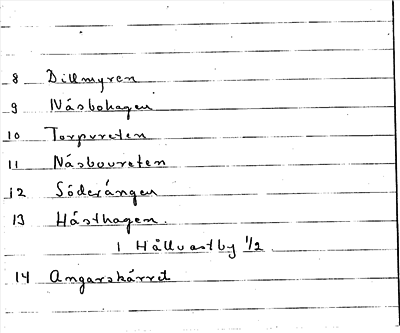 8 Dillmyren
9 Näsbohagen
10 Torpvreten
11 Näsbovreten
12 Söderängen
13 Hästhagen.
1 Hällvastby 1/2
14 Angarskärret